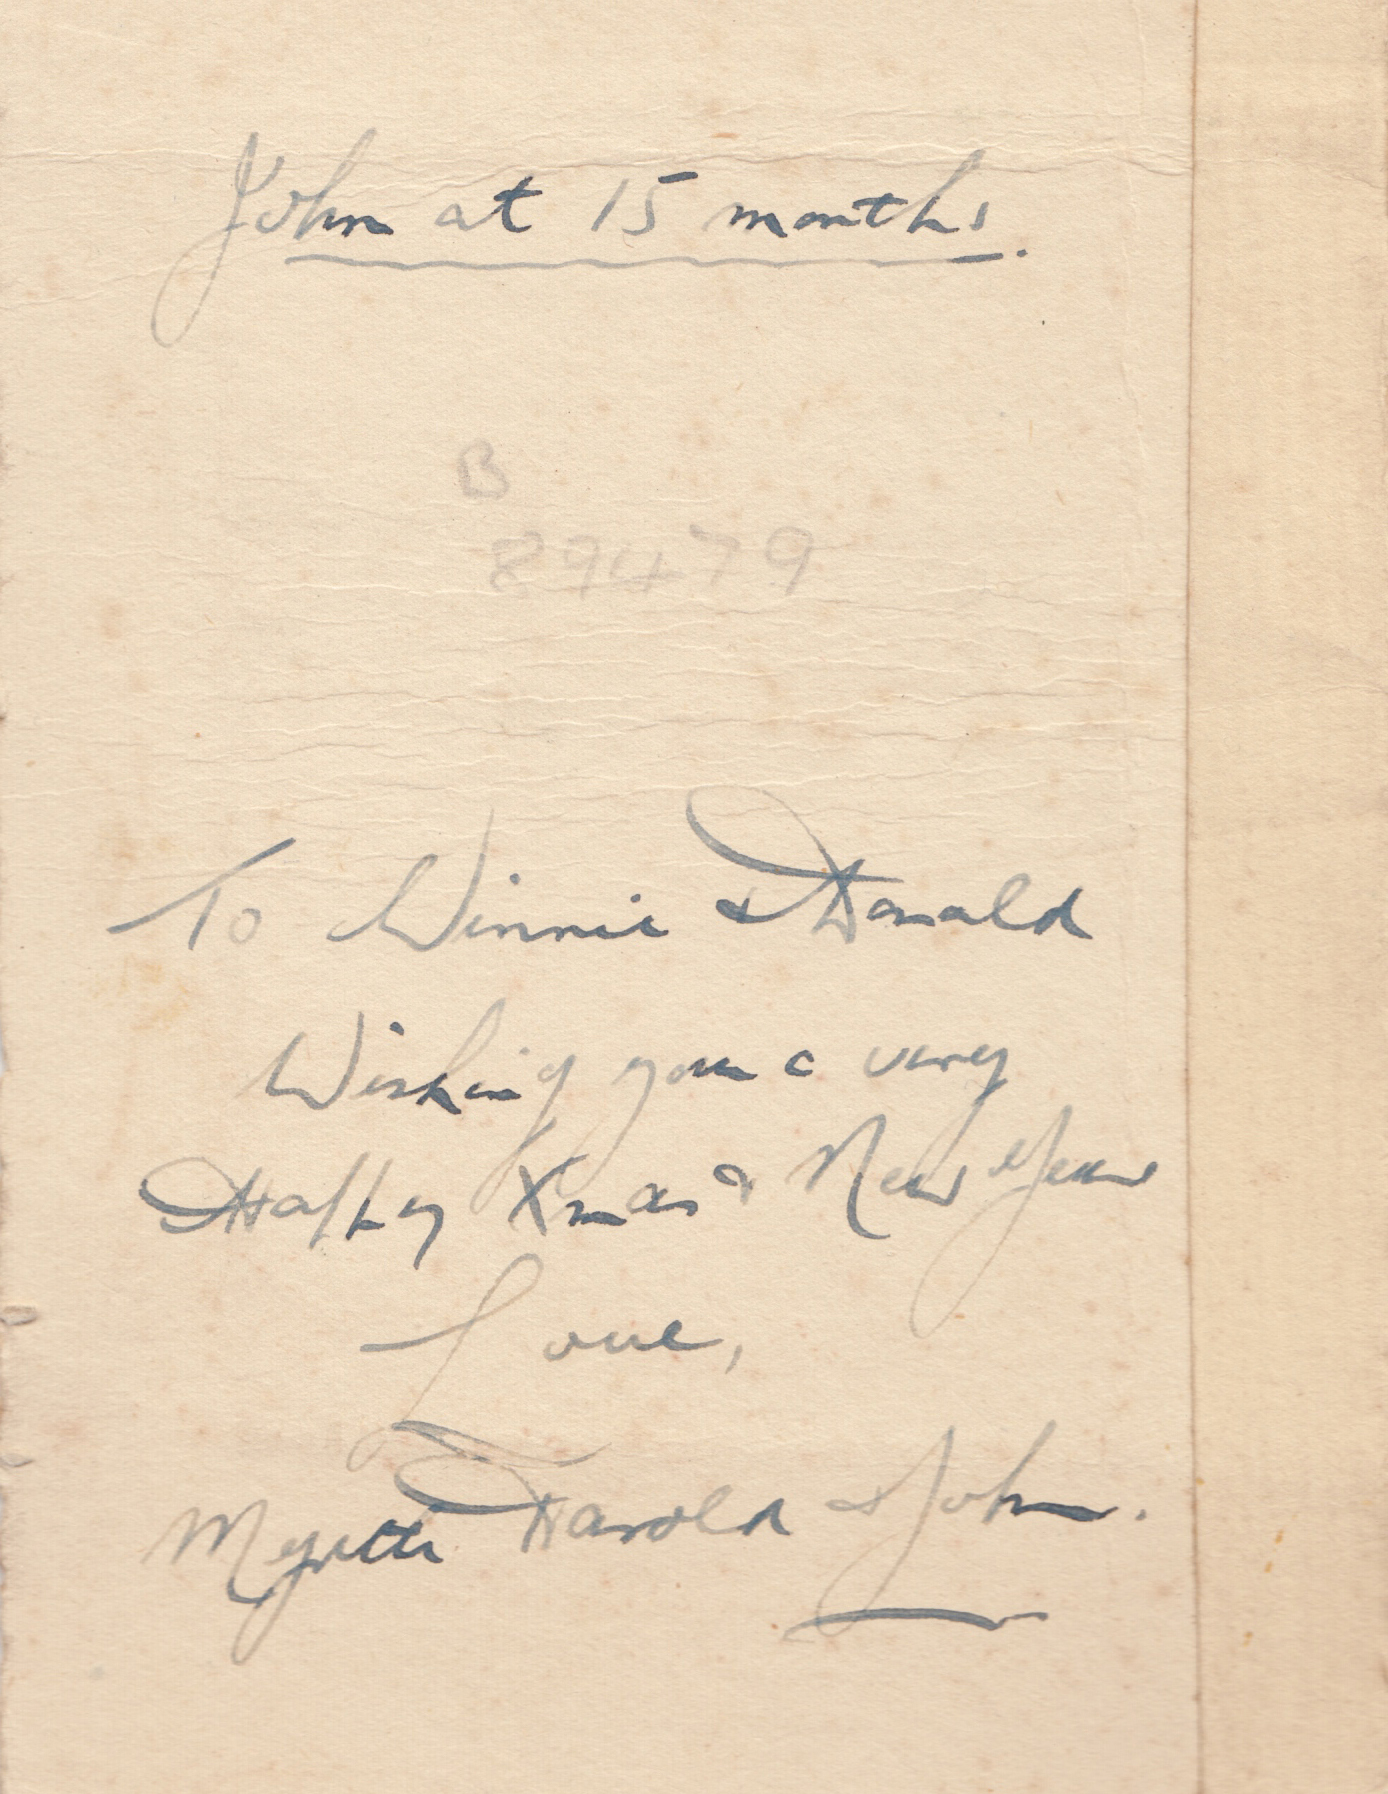 John at 15 months.
B
89479
To Winnie & Donald
Wishing you a very
Happy Xmas & New Year
Love,
Myrtle Harold & John.